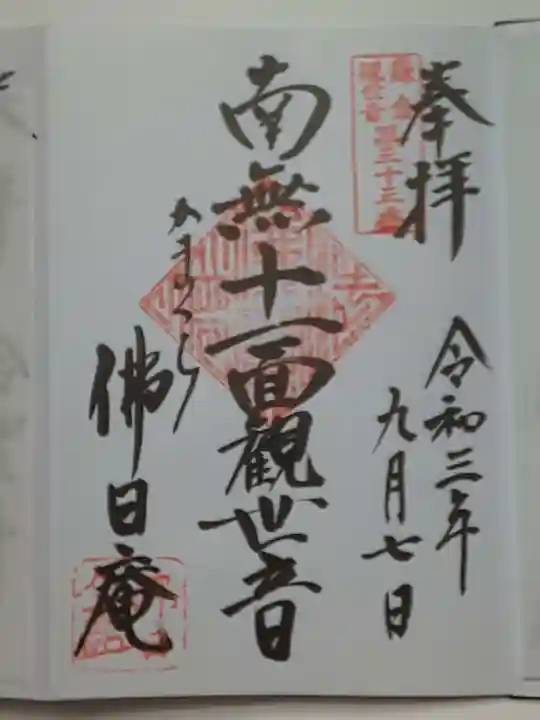 奉拝
鎌倉
観世音 第三十三番
令和三年
九月七日
南無十一面觀世音
かまくら
佛日庵